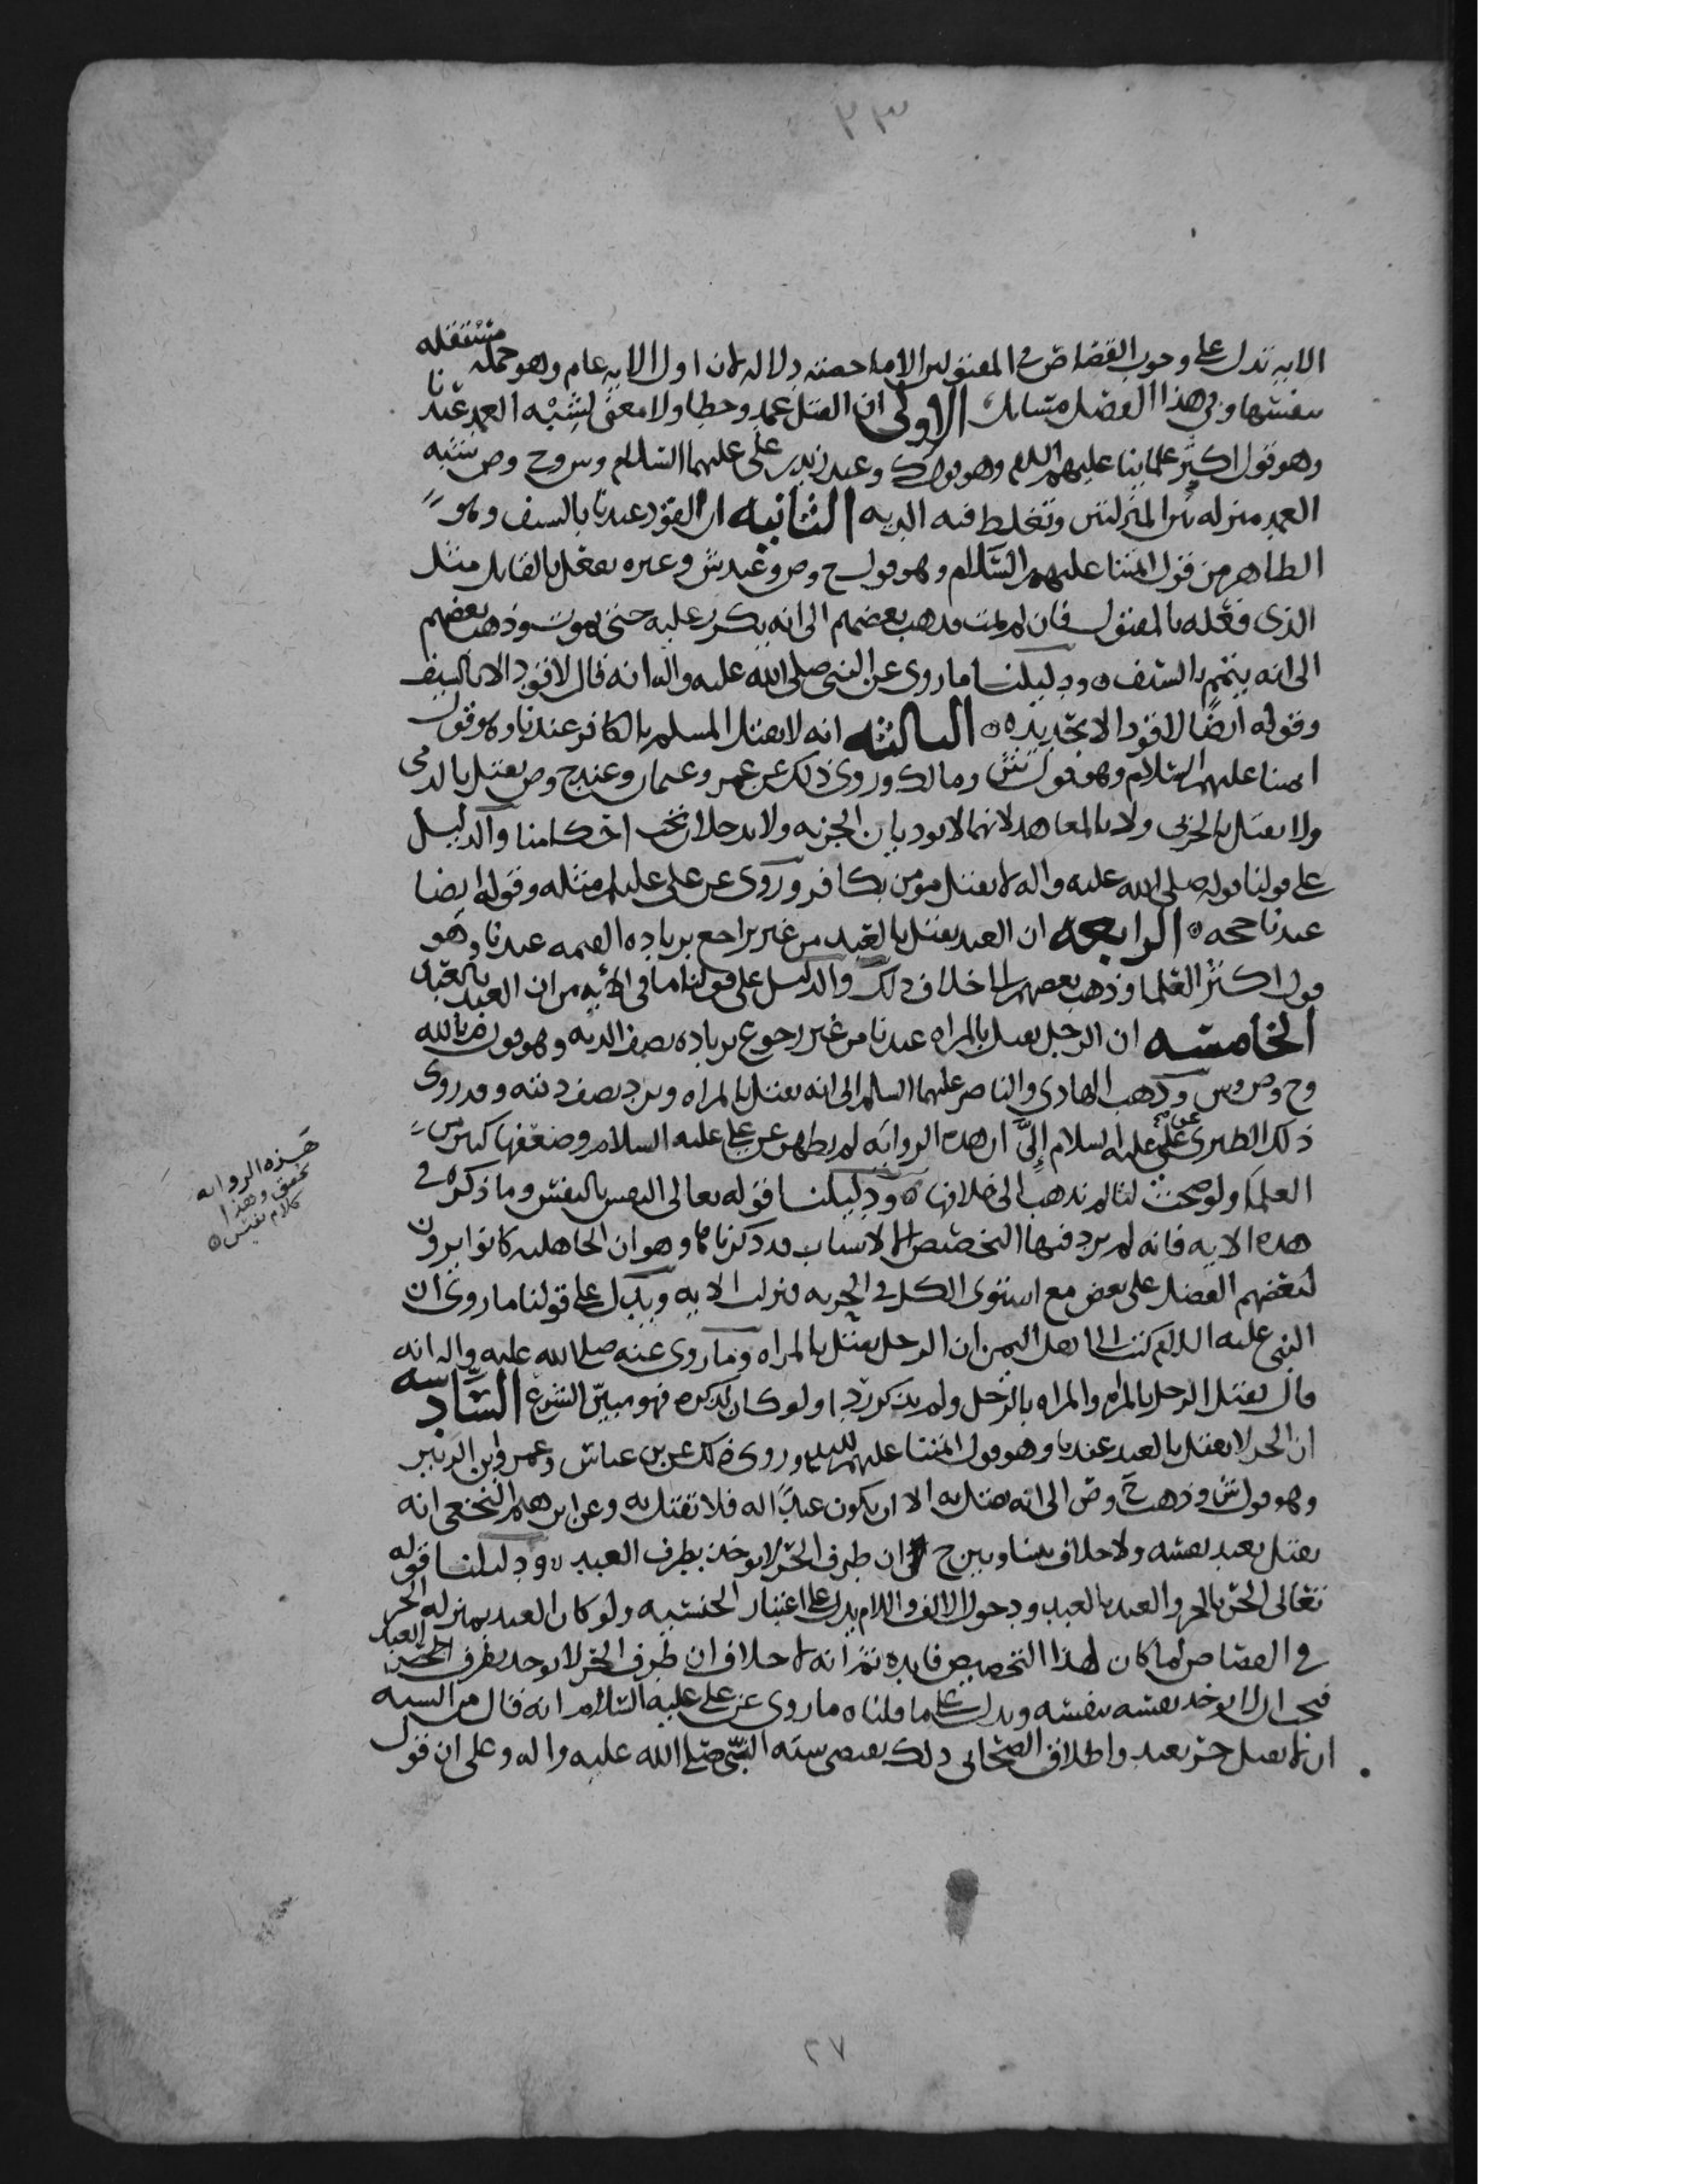 ٣٣
الايه تدل على وجوب القصاص في المقتولين الا ما خصته دلاله لان اول الايه عام وهو جمله مستقله
بنفسها وفي هذا الفصل مسايل الاولى ان القتل عمد وخطا ولا معنى لشبه العمد عندنا
وهو قول اكثر علماينا عليهم السلم وهو قول ك وعند زيد بن علي عليهما السلام وس وح وص شبه
العمد منزله بين المنزلتين وتغلظ فيه الديه الثانيه ان القود عندنا بالسيف وهو
الظاهر من قول ايمتنا عليهم السلام وهو قول ح وص وعند ش وغيره يفعل بالقاتل مثل
الذي فعله بالمقتول فان لم يمت فذهب بعضهم الى انه يكرر عليه حتى يموت وذهب بعضهم
الى انه يتمم بالسيف ودليلنا ما روي عن النبي صلى الله عليه واله انه قال لا قود الا بالسيف
وقوله ايضا لا قود الا بحديده الثالثه انه لا يقتل المسلم بالكافر عندنا وهو قول
ايمتنا عليهم السلام وهو قول ش ومالك وروي ذلك عن عمر وعثمان وعند ح وص يقتل بالذمي
ولا يقتل بالحربي ولا بالمعاهد لانهما لا يوديان الجزيه ولا يدخلان تحت احكامنا والدليل
على قولنا قوله صلى الله عليه واله لا يقتل مومن بكافر وروي عن علي عليلم مثله وقوله ايضا
عندنا حجه الرابعه ان العبد يقتل بالعبد من غير تراجع بزياده القيمه عندنا وهو
قول اكثر العلما وذهب بعضهم الى خلاف ذلك والدليل على قولنا ما في الايه من ان العبد بالعبد
الخامسه ان الرجل يقتل بالمراه عندنا من غير رجوع بزياده نصف الديه وهو قول م بالله
وح وص وس وذهب الهادي والناصر عليهما السلم الى انه يقتل بالمراه ويرد نصف ديته وقد روى
ذلك الطبري عن علي عليه السلام الى ان هذه الروايه لم يظهر عن علي عليه السلام وضعفها كثير من
العلما ولو صحت لنا لم نذهب الى خلافها ودليلنا قوله تعالى النفس بالنفس وما ذكره في
هذه الايه فانه لم يرد فيها التخصيص الا لاسباب قد ذكرناها وهو ان الجاهليه كانوا يرون
لبعضهم الفضل على بعض مع استوى الكل في الحريه فنزلت الايه ويدل على قولنا ما روي ان
النبي عليه السلام كتب الى اهل اليمن ان الرجل يقتل بالمراه وما روي عنه صلى الله عليه واله انه
قال يقتل الرجل بالمراه والمراه بالرجل ولم يذكر ردا ولو كان لذكره فهو مبين الشرع السادسه
ان الحر لا يقتل بالعبد عندنا وهو قول ايمتنا عليهم السلم وروي ذلك عن بن عباس وعمر وابن الزبير
وهو قول ش وذهب ح وص الى انه يقتل به الا ان يكون عبدا له فلا يقتل به وعن ابرهيم النخعي انه
يقتل بعبد نفسه ولا خلاف بيننا وبين ح ان طرف الحر لا يوخذ بطرف العبد ودليلنا قوله
تعالى الحر بالحر والعبد بالعبد ودخول الالف واللام يدل على اعتبار الجنسيه ولو كان العبد بمنزله الحر
في القصاص لما كان لهذا التخصيص فايده ثم انه لا خلاف ان طرف الحر لا يوخذ بطرف العبد
فيجب ان لا يوخذ نفسه بنفسه ويدل على ما قلناه ما روي عن علي عليه السلام انه قال من السنه
ان لا يقتل حر بعبد واطلاق الصحابي ذلك يقتضي سنه النبي صلى الله عليه واله وعلى ان قول
هذه الروايه
تحقق وهذا
كلام نفيس
٢٧